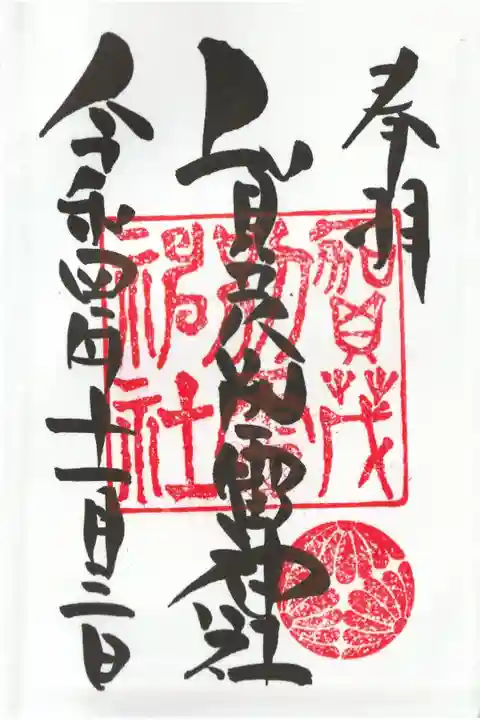 奉拝
上賀茂別雷神社
令和四年十一月二日
賀茂
神社